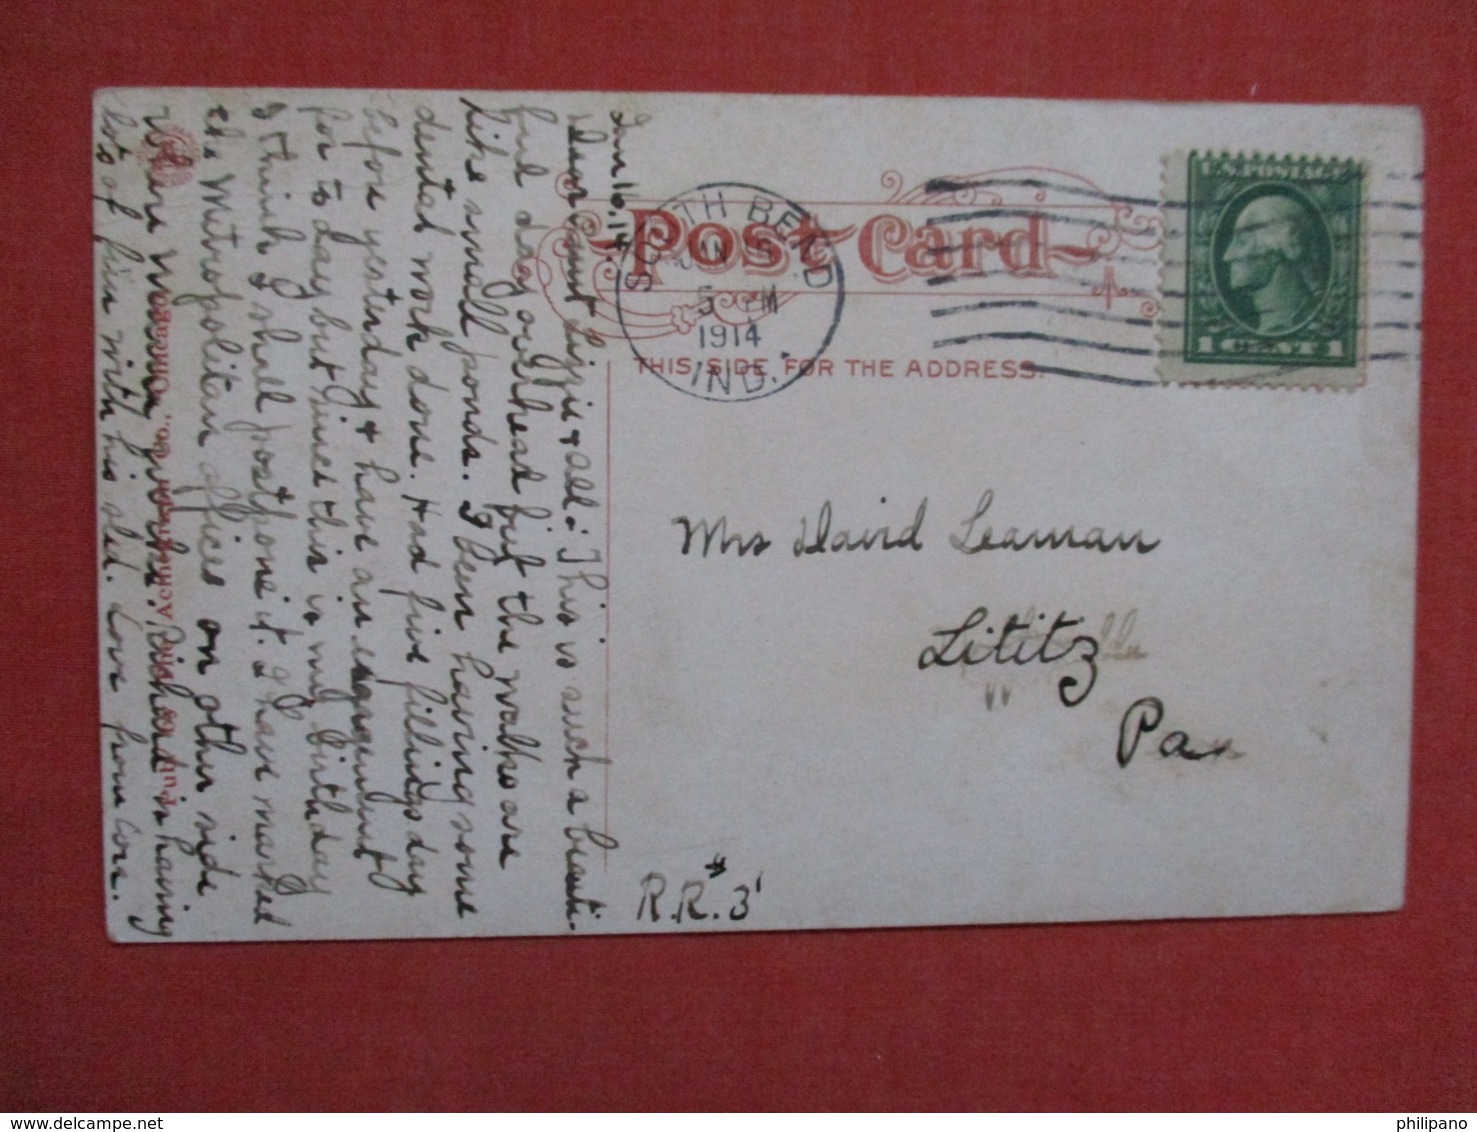 Jan 16, 14.
Dear Aunt Lizzie & all: This is such a beauti-
ful day overhead but the walks are
like small ponds. I been having some
dented work done. Had five fillings day
before yesterday & have an engagement
for to day but since this is my birthday
I think I shall postpone it. I have marked
the Metropolitan offices on other side
where works. Richard is having
lots of fun with his sled. Love from Cora.
SOUTH BEND
JAN 16
5 PM
1914
IND.
POST CARD
THIS SIDE FOR THE ADDRESS.
U.S. POSTAGE
1 CENT 1
Mrs David Leaman
Lititz
Pa
R.R. # 3
Acmegraph Co., Chicago
philipano
delcampe.net